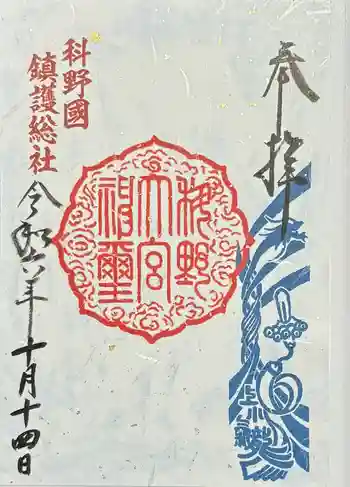 奉拝
科野
大宮
科野國
鎮護総社
令和六年十月十四日
上小